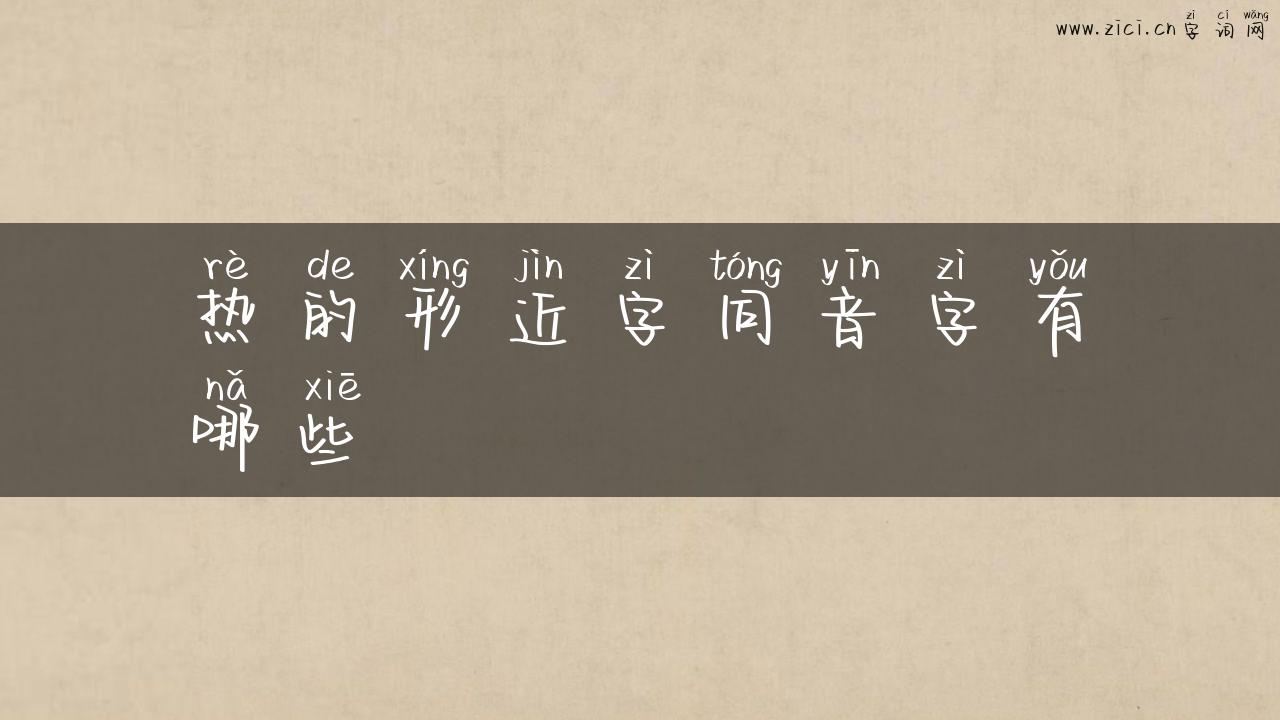 zì cí wǎng
www.zici.cn 字词网
rè de xíng jìn zì tóng yīn zì yǒu
热的形近字同音字有
nǎ xiē
哪些